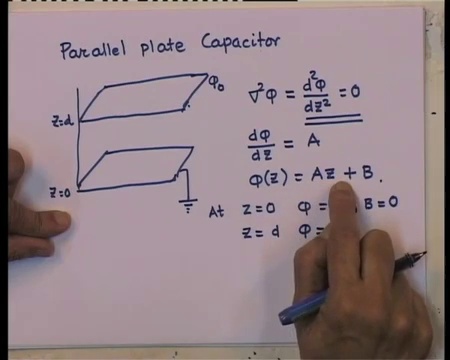 Parallel plate Capacitor
φ₀
z=d
z=0
∇²φ = d²φ/dz² = 0
dφ/dz = A
φ(z) = Az + B.
At z=0 φ = B=0
z=d φ =